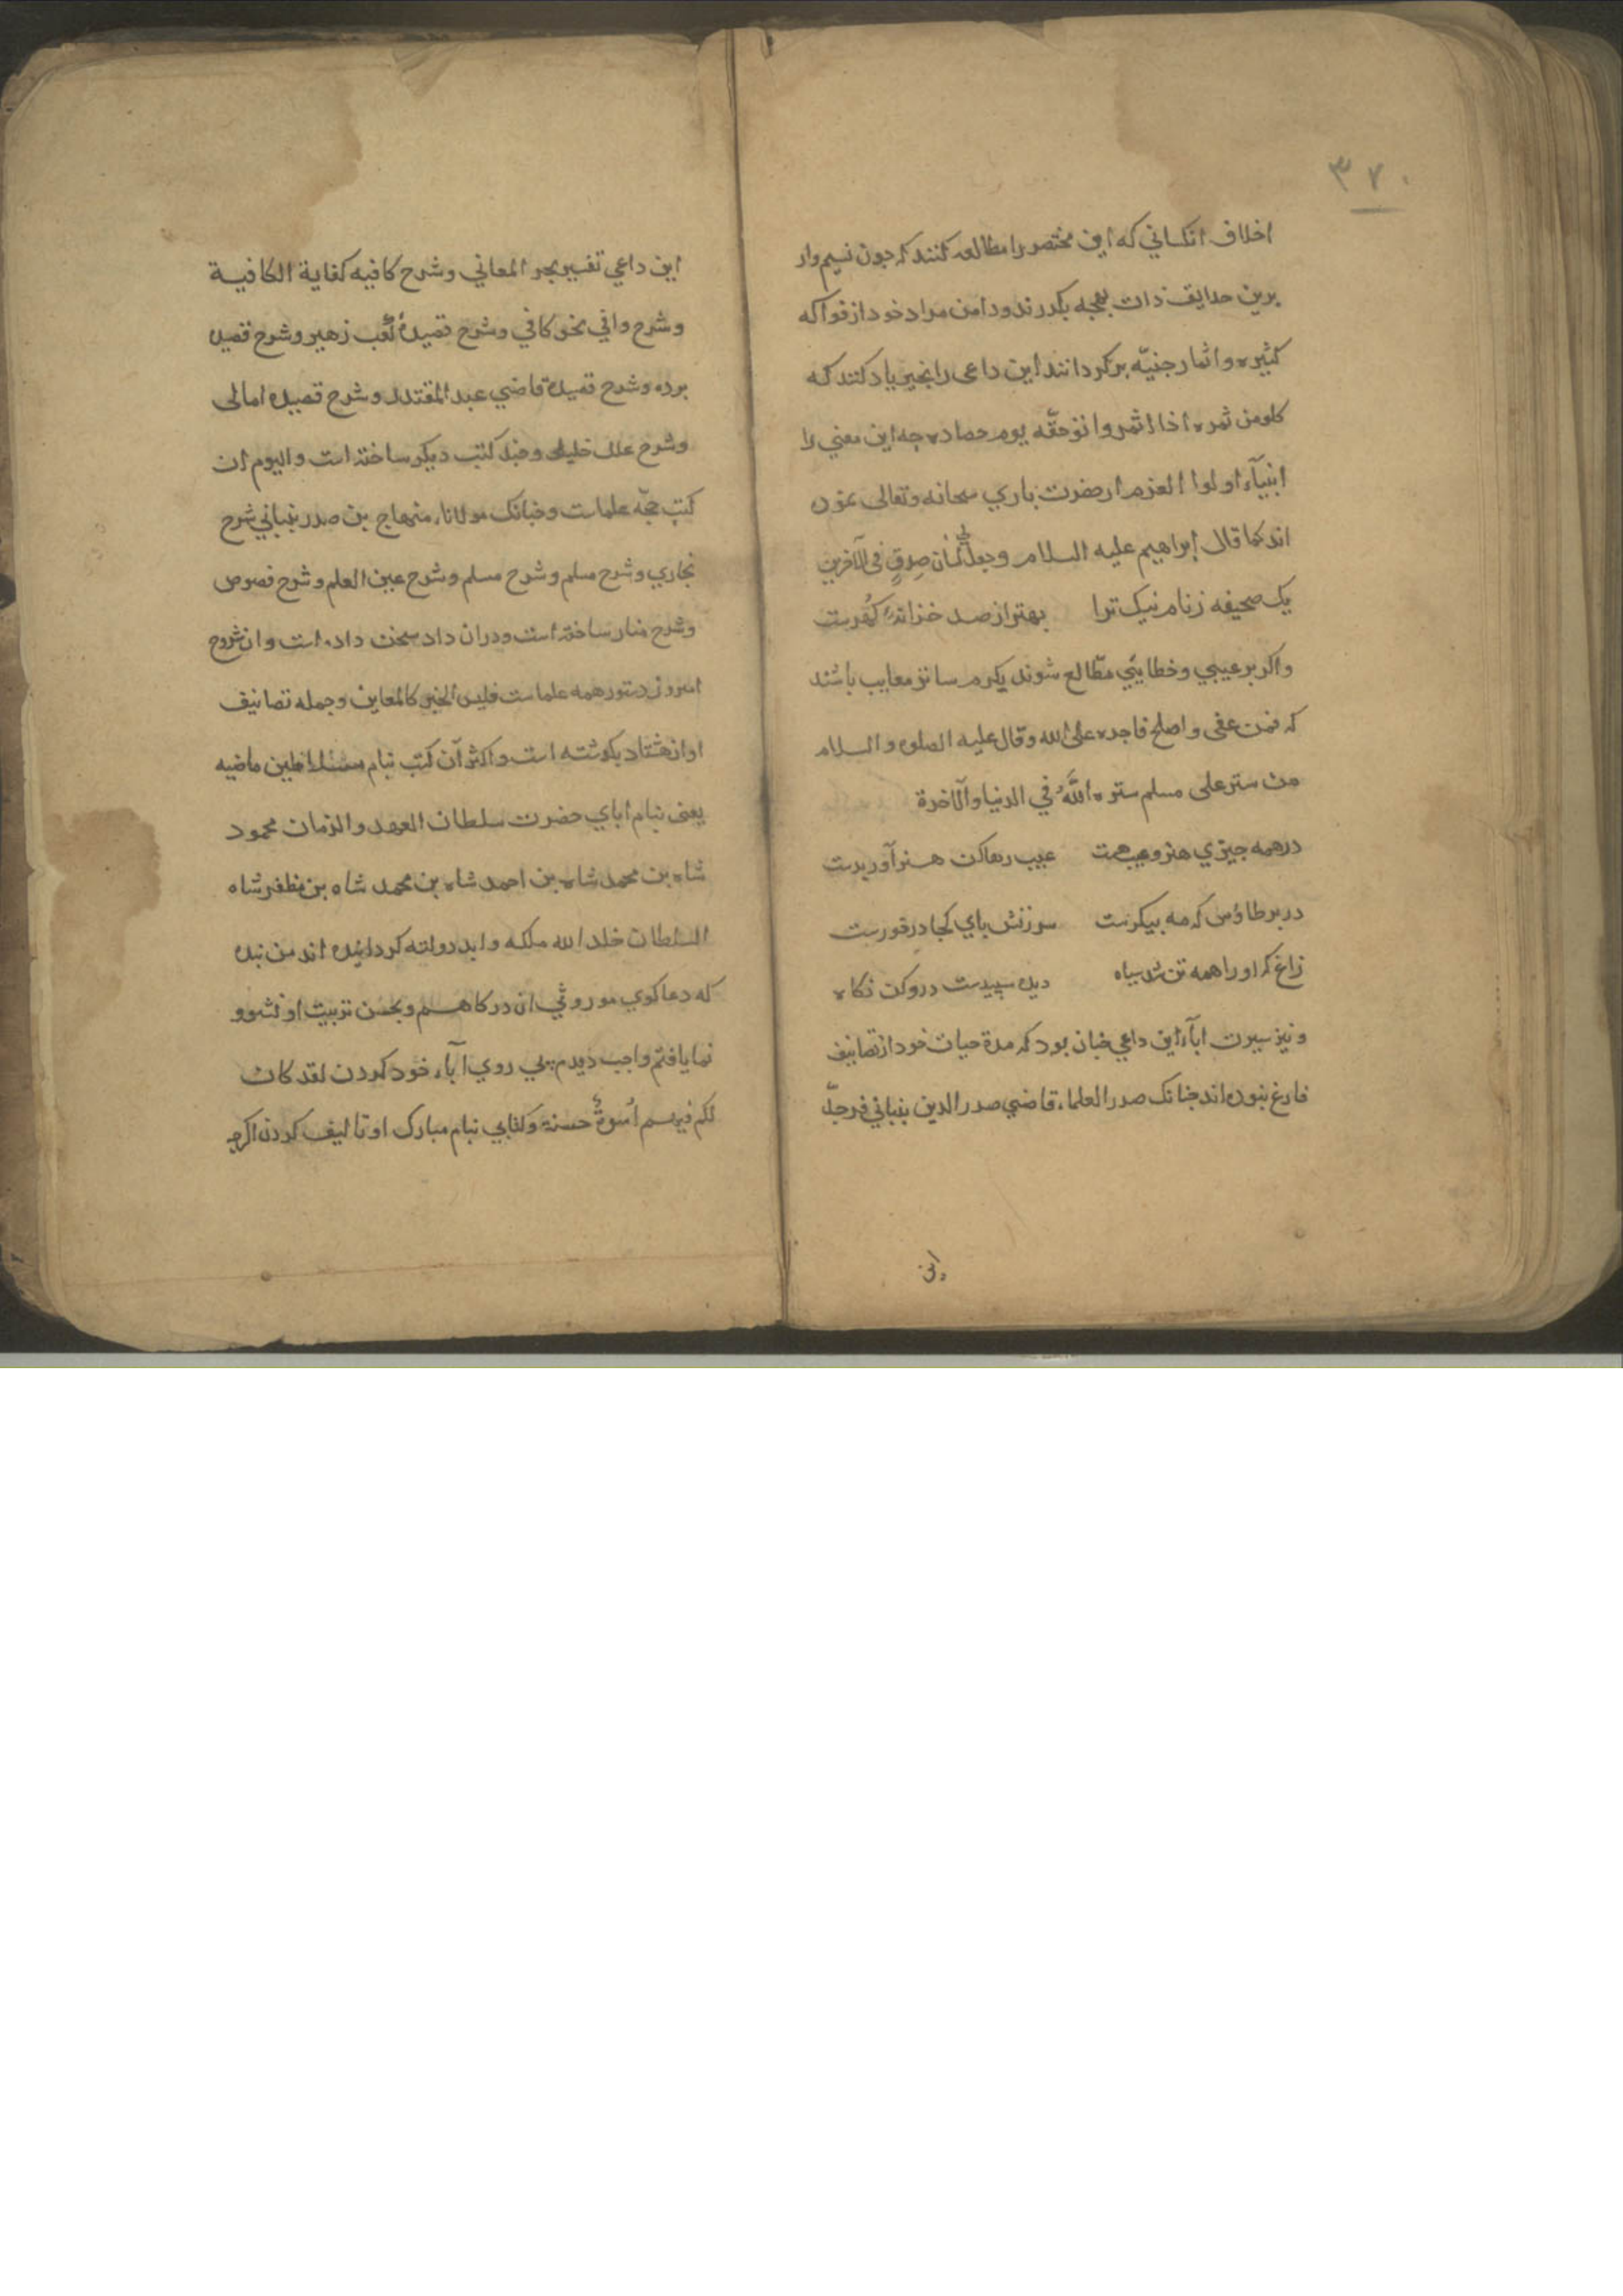 ۳۷۰
اخلاف انکسانی که این مختصر را مطالعه کنند که جون نسیم وار
برین حدایق ذات بهجه بکدرند و دامن مراد خود از فواکه
کثیره و اثمار جنیّه بر کردانند این داعی را بخیر یاد کنند که
کلو من ثمره اذا اثمر وا توحقّه یوم حصاده جه این معنی را
انبیآء اولوا العزم از حضرت باری سبحانه وتعالی
اند کما قال إبراهیم علیه السلام وجعل لی لسان صدقٍ فی الآخرین
یک صحیفه ز نام نیک ترا بهتر از صد خزانهٔ کهرست
واکر بر عیبی وخطایئی مطّالع شوند بکرم ساتر معایب باشند
که فمن عفی واصلح فاجره علی الله وقال علیه الصلوه والسلام
من ستر علی مسلم ستره اللّٰه فی الدنیا والآخرة
در همه جیزی هنر وعیب هست عیب رها کن هنر آور بدست
در بر طاؤس که مه بیکرست سرزنش بای کجا درخورست
زاغ که او را همه تن شد سیاه دیده سپیدست درو کن نکاه
ونیز سیرت ابآء این داعی جنان بود که مدة حیات خود از تصانیف
فارغ نبوده اند جنانک صدر العلماء قاضی صدر الدین بنبانی فرجدّ
این
این داعی تفسیر بحر المعانی وشرح کافیه کفایة الکافیة
وشرح وافی نحو کافی وشرح قصیدهٔ کعب زهیر وشرح قصیده
برده وشرح قصیدهٔ قاضی عبد المقتدر وشرح قصیده امالی
وشرح علل خلیلی وجند کتب دیکر ساخته است والیوم ان
کتب حجّه علماست وجنانک مولاناء منهاج بن صدر بنبانی شرح
بخاری وشرح مسلم وشرح مسلم وشرح عین العلم وشرح فصوص
وشرح منار ساخته است ودران داد سخن داده است وان شروح
امروز دستور همه علماست فلیس الخبر کالمعاین وجمله تصانیف
او از هشتاد بکدشته است واکثر آن کتب بنام سلاطین ماضیه
یعنی بنام ابای حضرت سلطان العهد والزمان محمود
شاه بن محمد شاه بن احمد شاه بن محمد شاه بن مظفر شاه
السلطان خلد الله ملکه وابد دولته کردانیده اند من بنده
که دعا کوی موروثی ان درکاهم وبحسن تربیت او نشوو
نما یافتم واجب دیدم پی روی آباء خود کردن لقد کان
لکم فیهم أسوةٌ حسنة وکتابی بنام مبارک او تالیف کردن اکرجه